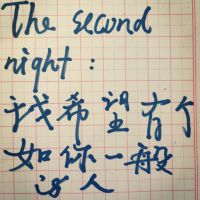 The second
night :
我希望有个
如你一般
的人